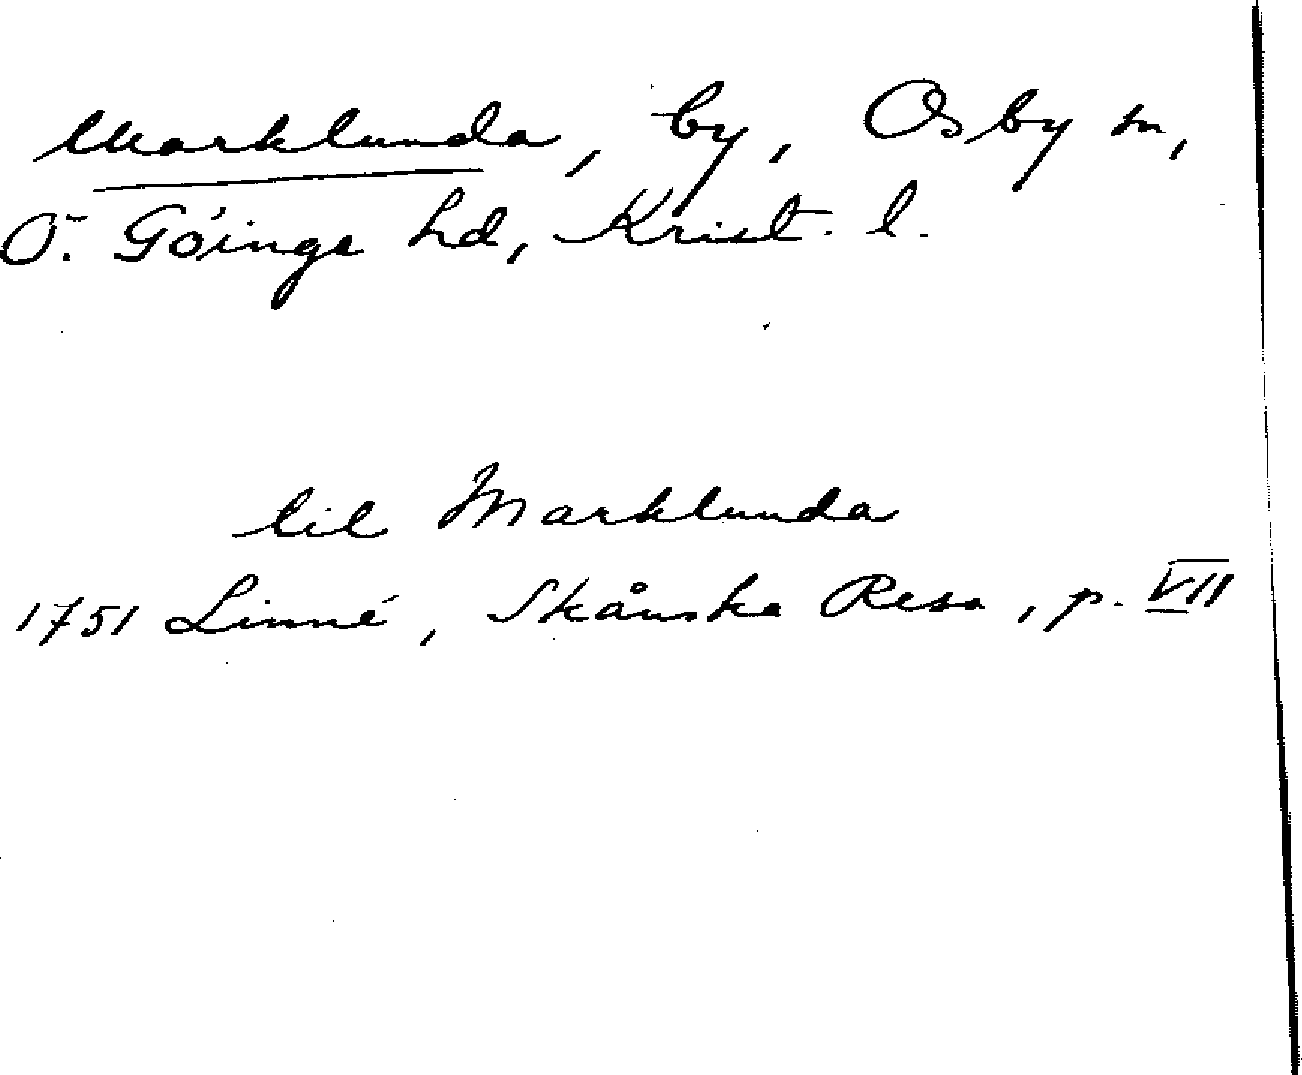 Marklunda, by, Osby sn,
Ö. Göinge hd, Krist. l.
til Marklunda
1751 Linné, Skånska Resa, p. VII